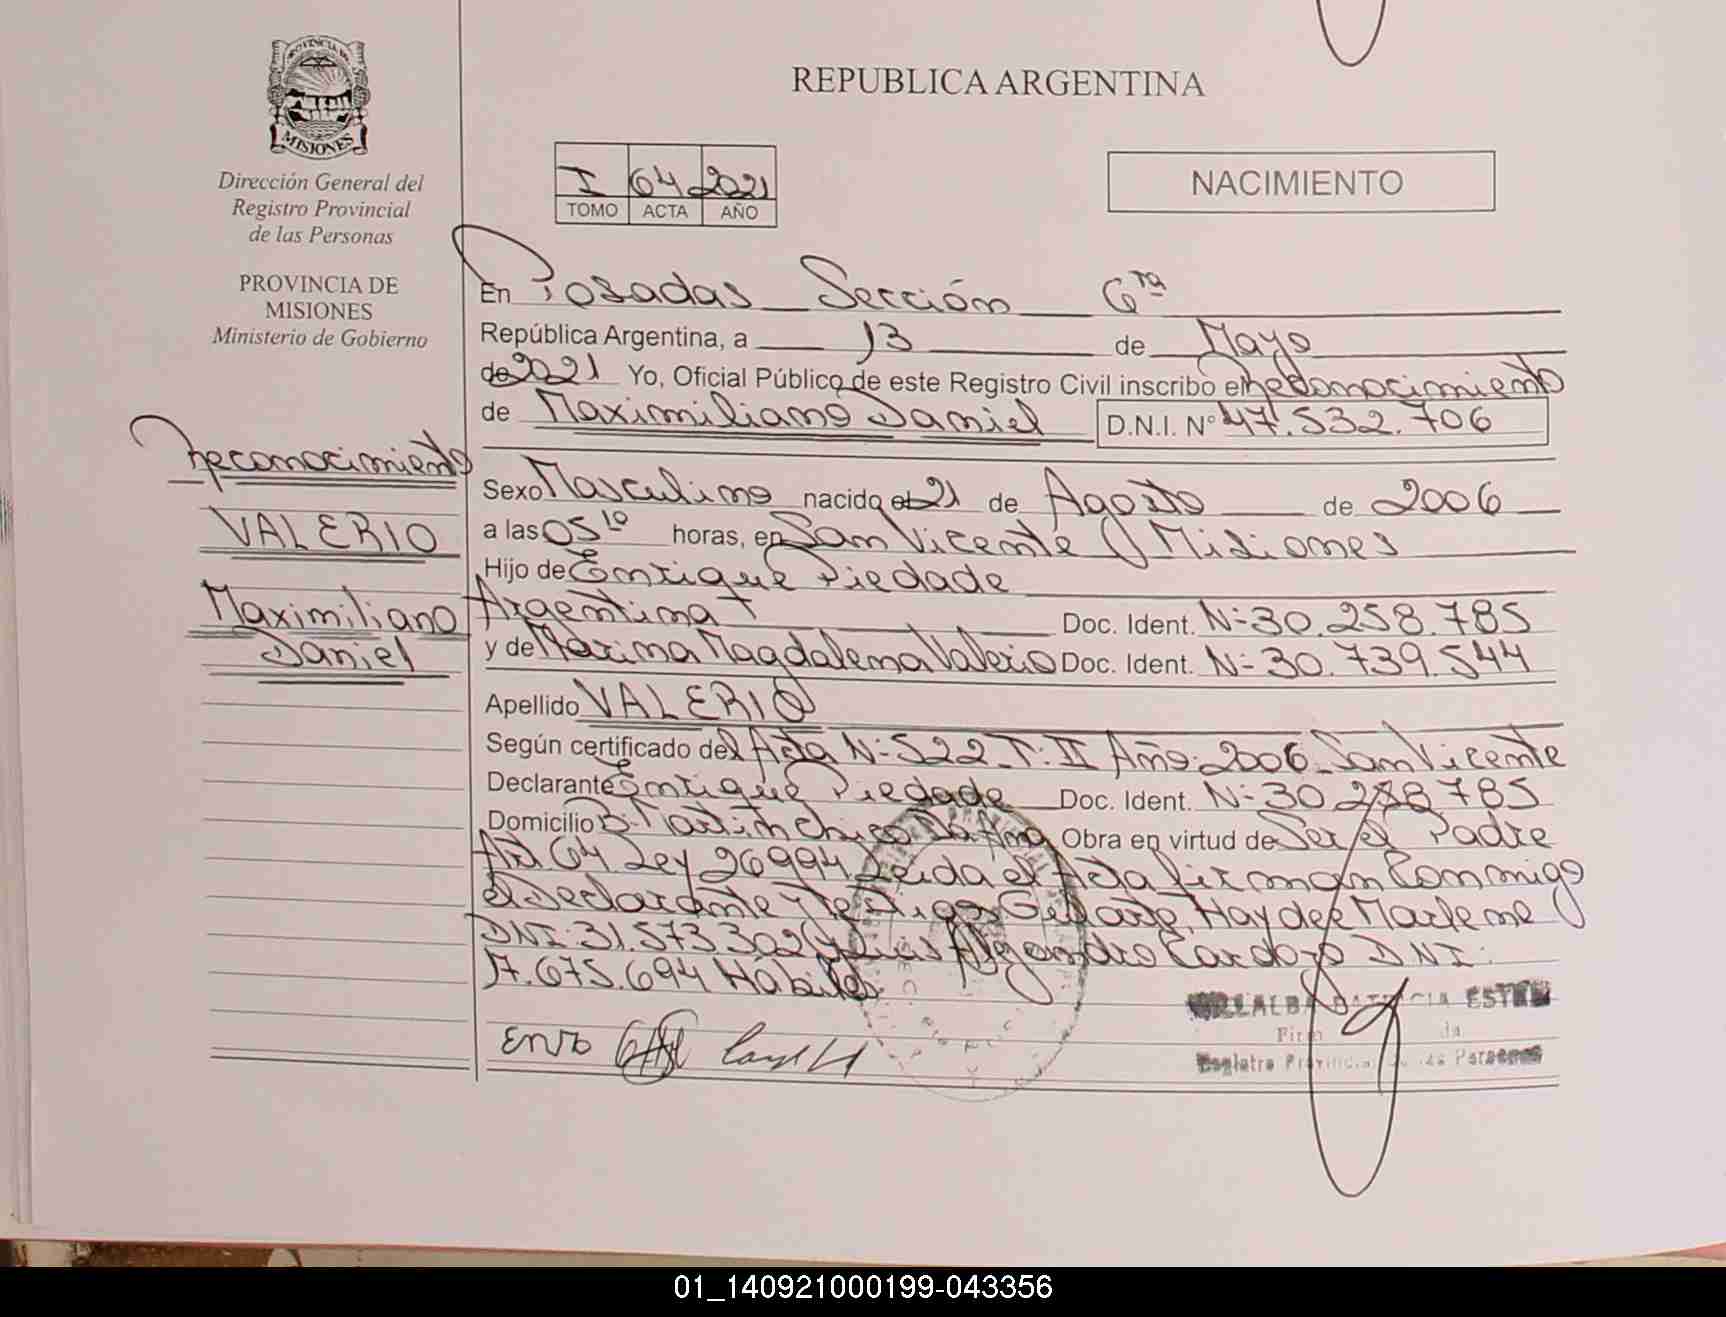 PROVINCIA DE
MISIONES
Dirección General del
Registro Provincial
de las Personas
PROVINCIA DE
MISIONES
Ministerio de Gobierno
Reconocimiento
VALERIO
Maximiliano
Daniel
REPUBLICA ARGENTINA
I 64 2021
TOMO ACTA AÑO
NACIMIENTO
En Posadas Sección 6ta
República Argentina, a 13 de Mayo
de 2021 Yo, Oficial Público de este Registro Civil inscribo el Reconocimiento
de Maximiliano Daniel D.N.I. Nº 47.532.706
Sexo Masculino nacido el 21 de Agosto de 2006
a las 05 10 horas, en San Vicente Misiones
Hijo de Enrique Piedade
Argentina Doc. Ident. Nº 30.258.785
y de Marina Magdalena Valerio Doc. Ident. Nº 30.739.544
Apellido VALERIO
Según certificado del Acta Nº 522 T: II Año: 2006 San Vicente
Declarante Enrique Piedade Doc. Ident. Nº 30 258 785
Domicilio Bº Martin Chico Obra en virtud de Ser el Padre
Art. 64 Ley 26994 Leida el Acta firman Conmigo
el Declarante y Testigos Haydee Marlene
DNI: 31.573.302 y Luis Alejandro Cardozo DNI:
17.675.694 Hábiles
VILLALBA PATRICIA ESTER
Registro Provincial de las Personas
01_140921000199-043356